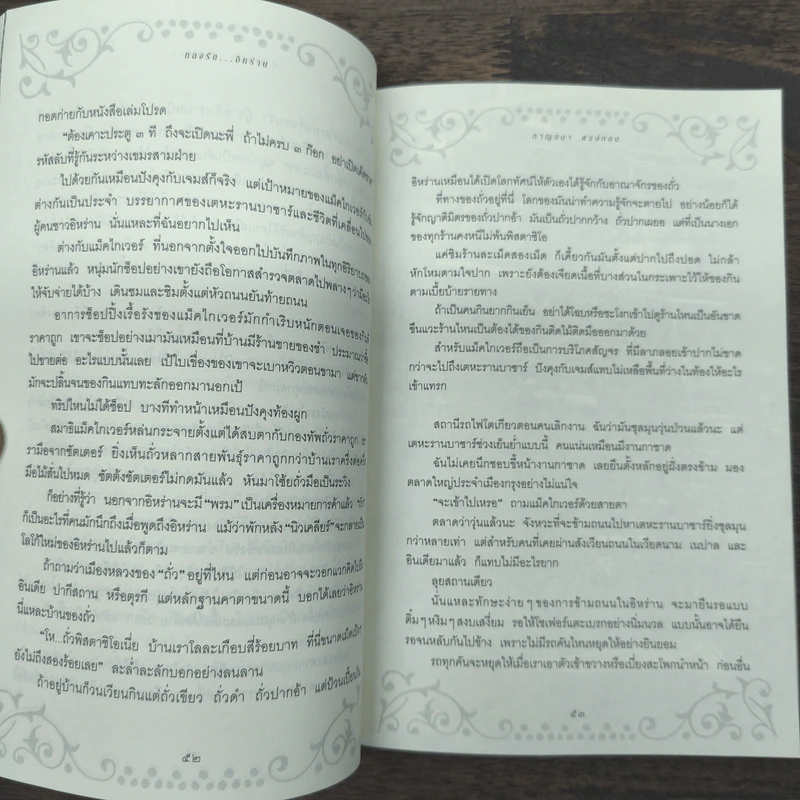 กอดก่ายกับหนังสือเล่มโปรด
"ต้องเคาะประตู ๓ ที ถึงจะเปิดนะพี่ ถ้าไม่ครบ ๓ ก๊อก อย่าเปิด
รหัสลับที่รู้กันระหว่างเขมรสามฝ่าย
ไปด้วยกันเหมือนปังคุงกับเจมส์ก็จริง แต่เป้าหมายของแม็คไกเวอร์กับ
ต่างกันเป็นประจำ บรรยากาศของเตหะรานบาซาร์และชีวิตที่เคลื่อนไป
ผู้คนชาวอิหร่าน นั่นแหละที่ฉันอยากไปเห็น
ต่างกับแม็คไกเวอร์ ที่นอกจากตั้งใจออกไปบันทึกภาพในทุกอิริยาบถของ
อิหร่านแล้ว หนุ่มนักช็อปอย่างเขายังถือโอกาสสำรวจตลาดไปพลางๆ ว่ามีอะไร
ให้จับจ่ายได้บ้าง เดินชมและชิมตั้งแต่หัวถนนยันท้ายถนน
อาการช็อปปิ้งเรื้อรังของแม็คไกเวอร์มักกำเริบหนักตอนเจอของกิน
ราคาถูก เขาจะช็อปอย่างเมามันเหมือนที่บ้านมีร้านขายของชำ ประมาณว่าซื้อ
ไปขายต่อ อะไรแบบนั้นเลย เป้ใบเขื่องของเขาจะเบาหวิวตอนขามา แต่ขากลับ
มักจะปลิ้นจนของกินแทบทะลักออกมานอกเป้
ทริปไหนไม่ได้ช็อป บางทีทำหน้าเหมือนปังคุงท้องผูก
สมาธิแม็คไกเวอร์หล่นกระจายตั้งแต่ได้สบตากับกองทัพถั่วราคาถูก เขา
รามือจากชัตเตอร์ ยิ่งเห็นถั่วหลากสายพันธุ์ราคาถูกกว่าบ้านเราครึ่งต่อครึ่ง
มือไม้สั่นไปหมด ชัตดังชัตเตอร์ไม่กดมันแล้ว หันมาโซ้ยถั่วมือเป็นระวิง
ก็อย่างที่รู้ว่า นอกจากอิหร่านจะมี "พรม" เป็นเครื่องหมายการค้าแล้ว "ถั่ว"
ก็เป็นอะไรที่คนมักนึกถึงเมื่อพูดถึงอิหร่าน แม้ว่าพักหลัง "นิวเคลียร์" จะกลายเป็น
โลโก้ใหม่ของอิหร่านไปแล้วก็ตาม
ถ้าถามว่าเมืองหลวงของ "ถั่ว" อยู่ที่ไหน แต่ก่อนอาจจะวอกแวกคิดไปถึง
อินเดีย ปากีสถาน หรือตุรกี แต่หลักฐานคาตาขนาดนี้ บอกได้เลยว่าอิหร่าน
นี่แหละบ้านของถั่ว
"โห...ถั่วพิสตาชิโอเนี่ย บ้านเราโลละเกือบสี่ร้อยบาท ที่นี่ขนาดเม็ดเป้งๆ
ยังไม่ถึงสองร้อยเลย" ละล่ำละลักบอกอย่างลนลาน
ถ้าอยู่บ้านก็วนเวียนกินแต่ถั่วเขียว ถั่วดำ ถั่วปากอ้า แต่ป้วนเปี้ยนใน
๕๒
กาญจนา หงษ์ทอง
อิหร่านเหมือนได้เปิดโลกทัศน์ให้ตัวเองได้รู้จักกับอาณาจักรของถั่ว
ที่ทางของถั่วอยู่ที่นี่ โลกของมันน่าทำความรู้จักจะตายไป อย่างน้อยก็ได้
รู้จักญาติมิตรของถั่วปากอ้า มันเป็นถั่วปากกว้าง ถั่วปากเผยอ แต่ที่เป็นนางเอก
ของทุกร้านคงหนีไม่พ้นพิสตาชิโอ
แค่ชิมร้านละเม็ดสองเม็ด ก็เคี้ยวกันมันตั้งแต่ปากไปถึงปอด ไม่กล้า
หักโหมตามใจปาก เพราะยังต้องเจียดเนื้อที่บางส่วนในกระเพาะไว้ให้ของกิน
ตามเบี้ยบ้ายรายทาง
ถ้าเป็นคนกินยากกินเย็น อย่าได้โฉบหรือชะโงกเข้าไปดูร้านไหนเป็นอันขาด
ขืนแวะร้านไหนเป็นต้องได้ของกินติดไม้ติดมือออกมาด้วย
สำหรับแม็คไกเวอร์ถือเป็นการบริโภคสัญจร ที่มีลาภลอยเข้าปากไม่ขาด
กว่าจะไปถึงเตหะรานบาซาร์ ปังคุงกับเจมส์แทบไม่เหลือพื้นที่ว่างในท้องให้อะไร
เข้าแทรก
สถานีรถไฟโตเกียวตอนคนเลิกงาน ฉันว่ามันชุลมุนวุ่นป่วนแล้วนะ แต่
เตหะรานบาซาร์ช่วงเย็นย่ำแบบนี้ คนแน่นเหมือนมีงานกาชาด
ฉันไม่เคยนึกชอบขี้หน้างานกาชาด เลยยืนตั้งหลักอยู่ฝั่งตรงข้าม มอง
ตลาดใหญ่ประจำเมืองกรุงอย่างไม่แน่ใจ
"จะเข้าไปเหรอ" ถามแม็คไกเวอร์ด้วยสายตา
ตลาดว่าวุ่นแล้วนะ จังหวะที่จะข้ามถนนไปหาเตหะรานบาซาร์ยิ่งชุลมุน
กว่าหลายเท่า แต่สำหรับคนที่เคยผ่านสังเวียนถนนในเวียดนาม เนปาล และ
อินเดียมาแล้ว ก็แทบไม่มีอะไรยาก
ลุยสถานเดียว
นั่นแหละทักษะง่ายๆ ของการข้ามถนนในอิหร่าน จะมายืนรอแบบ
ติ๋มๆ หงิมๆ สงบเสงี่ยม รอให้โชเฟอร์แตะเบรกอย่างนิ่มนวล แบบนั้นอาจได้ยืน
รอจนหลับกันไปข้าง เพราะไม่มีรถคันไหนหยุดให้อย่างยินยอม
รถทุกคันจะหยุดให้เมื่อเราเอาตัวเข้าขวางหรือเบี่ยงสะโพกนำหน้า ก่อนยื่น
๕๓